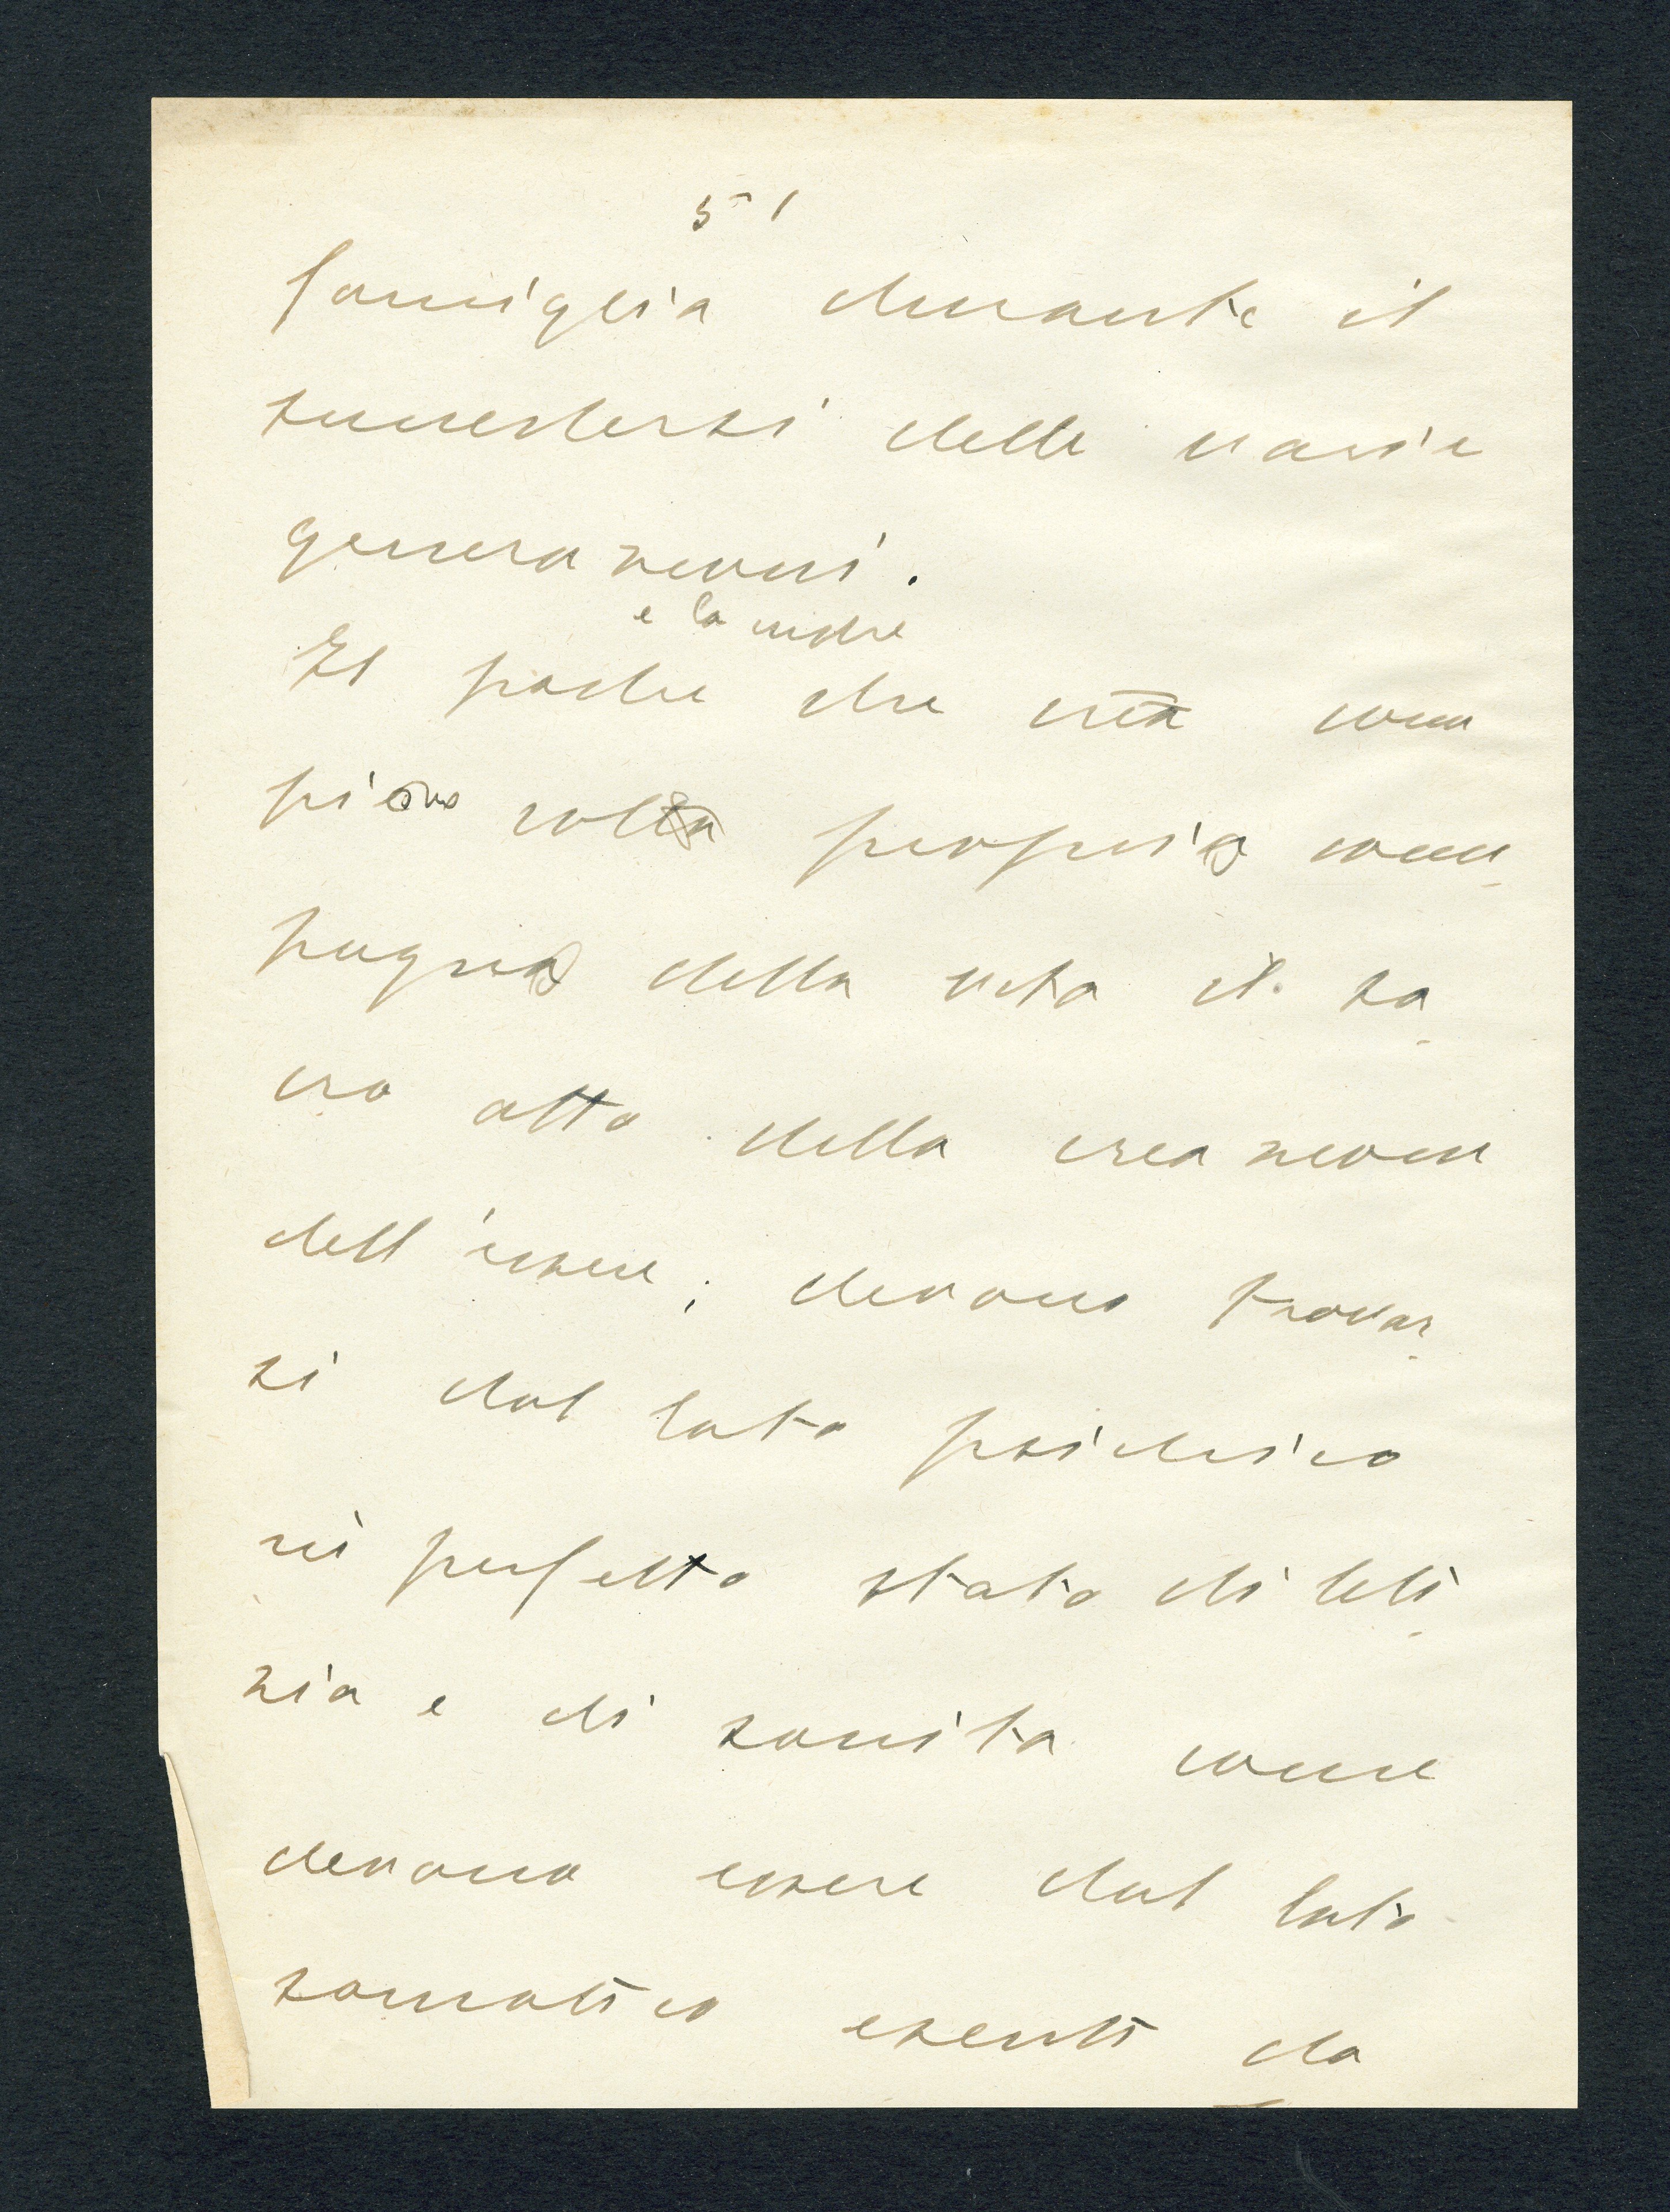 51
famiglia durante il
succedersi delle varie
generazioni.
e la madre
Il padre che crea com
piono colla propria com-
pagna della vita il sa-
cro atto della creazione
dell'essere; devono trovar-
si dal lato psichico
in perfetto stato di leti-
zia e di sanità come
devono essere dal lato
somatico esenti da